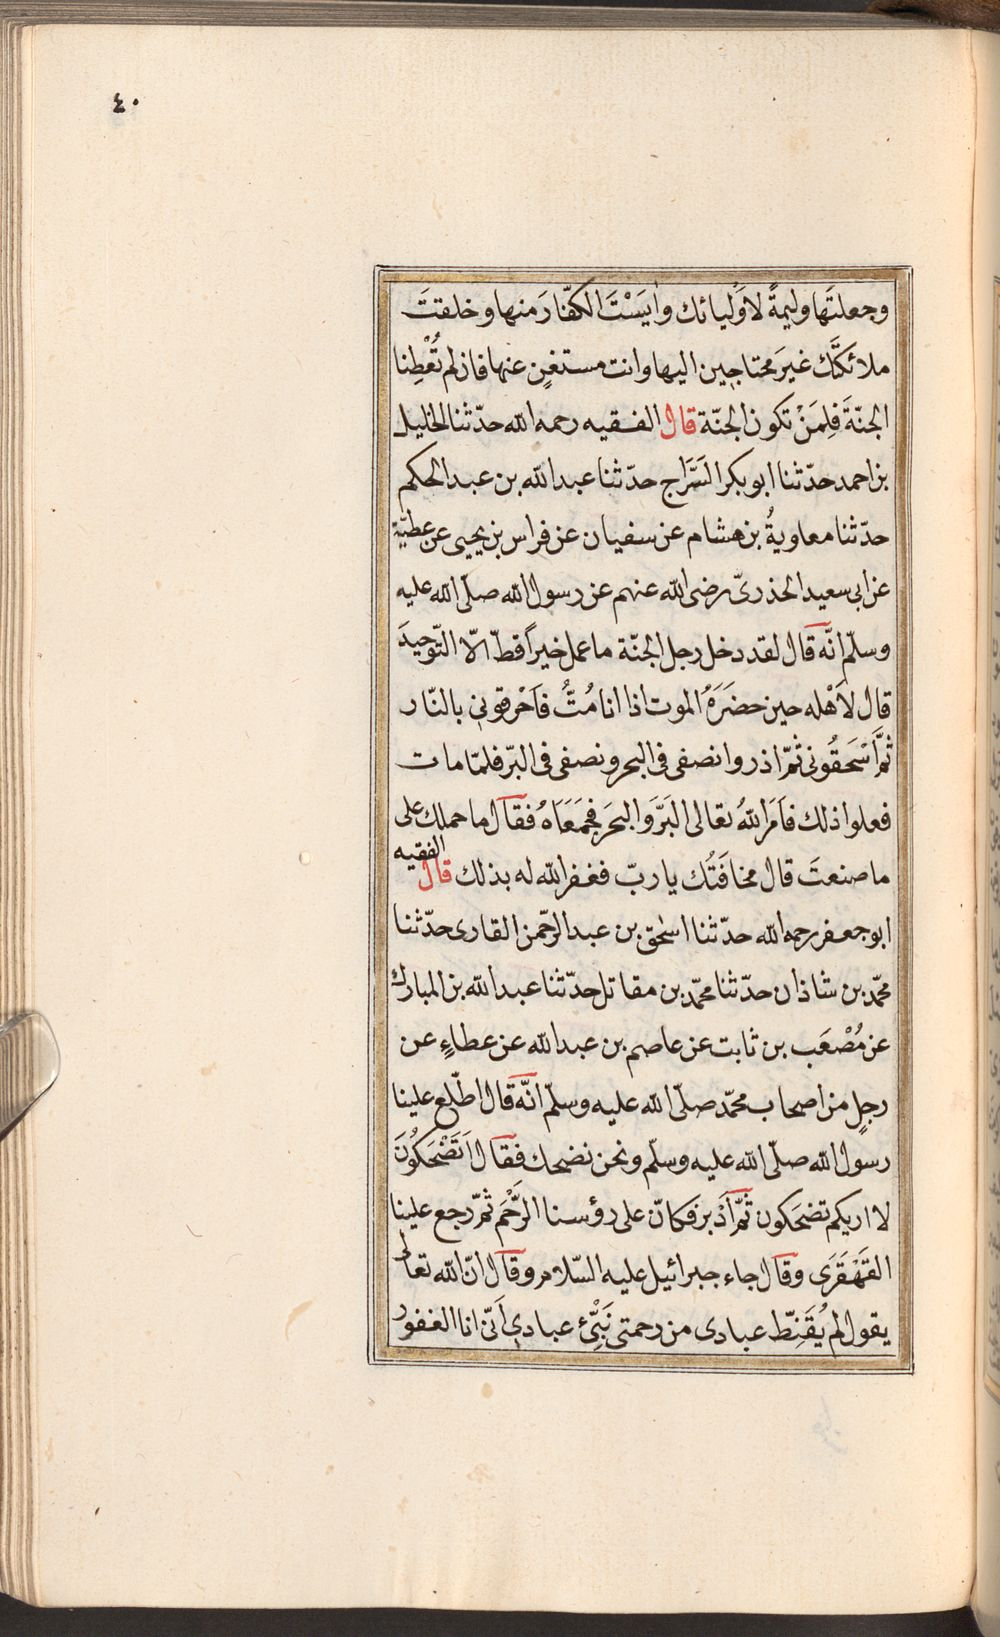 ٤٠
وجعلتَها وليمةً لاَوْليائك واٰيَسْتَ الكفّارَ منها وخلقتَ
ملائكتَك غيرَ محتاجين اليها وانت مستغنٍ عنها فان لم تُعْطِنا
الجنّةَ فَلِمَنْ تكون الجنّة قال الفقيه رحمه الله حدّثنا الخليل
بن احمد حدّثنا ابو بكر السَّرَّاج حدّثنا عبد الله بن عبد الحكم
حدّثنا معاويةُ بن هشام عن سفيان عن فراس بن يحيى عن عطيّة
عن ابى سعيد الخذرىّ رضى الله عنهم عن رسول الله صلّى الله عليه
وسلّم انّه قال لقد دخل رجل الجنّة ما عمل خيراً قطّ الّا التّوحيدَ
قال لاَهْله حين حضَرَهُ الموت اذا انا مُتُّ فَاَحْرقونى بالنّار
ثمَّ اَسْحَقُونى ثمّ اذروا نصفى فى البحر ونصفى فى البرّ فلمّا مات
فعلوا ذلك فاَمَر اللهُ تعالى البَرَّ وَالبحَرَ فجمَعَاهُ فقال ما حملك على
ما صنعتَ قال مخافَتُك يا ربّ فغفر الله له بذلك قال الفقيه
ابو جعفر رحمه الله حدّثنا اسٰحق بن عبد الرّحمن القارى حدّثنا
محمّد بن شاذان حدّثنا محمّد بن مقاتل حدّثنا عبد الله بن المبارك
عن مُصْعَب بن ثابت عن عاصم بن عبد الله عن عطاءٍ عن
رجلٍ من اصحاب محمّد صلّى الله عليه وسلّم انّه قال اطّلع علينا
رسول الله صلّى الله عليه وسلّم ونحن نضحك فقال اَتَضْحَكُونَ
لا اريكم تضحَكون ثمّ اَدْبر فكانّ على رؤسنا الرَّخَم ثمّ رجع علينا
القَهْقَرَى وقال جاء جبرائيل عليه السّلام وقال انّ الله تعالى
يقول لم يُقَنِّط عبادى من رحمتى نَبِّئ عبادى اَنّى انا الغفور